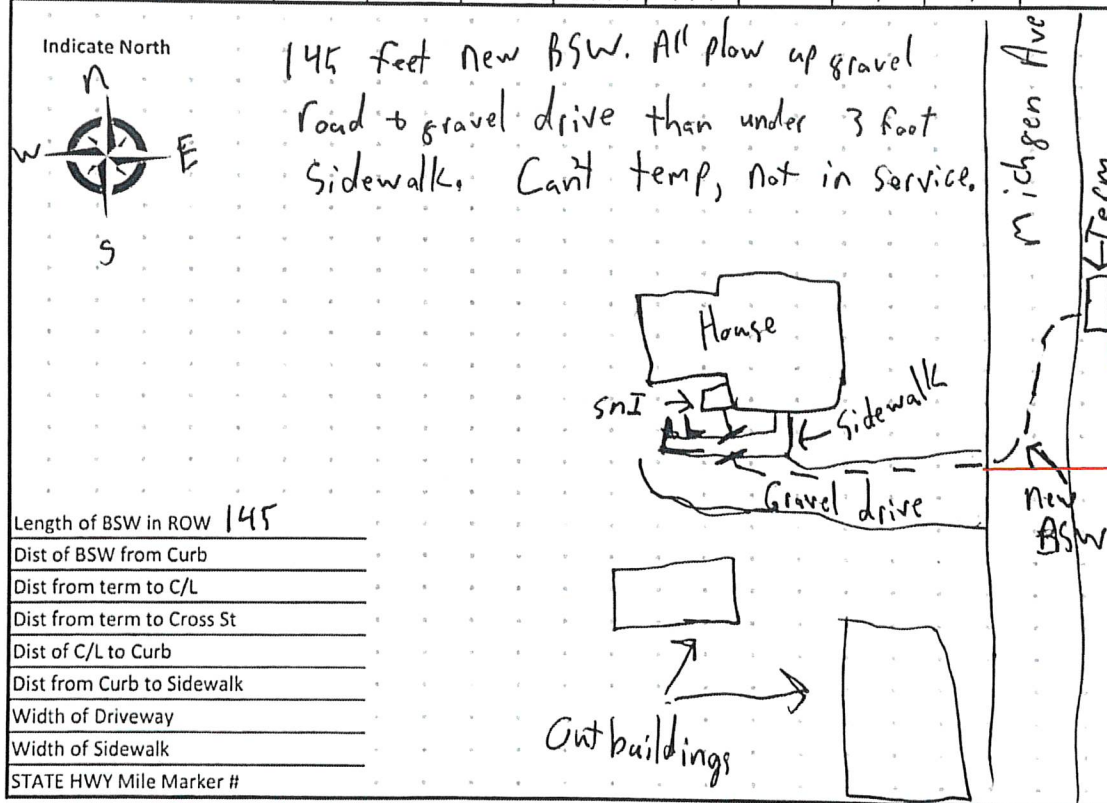 Indicate North
N
W
E
S
145 feet new BSW. All plow up gravel
road to gravel drive than under 3 foot
Sidewalk. Can't temp, not in service.
Michgen Ave
←Term
House
SnI →
← Sidewalk
Gravel drive
new
BSW
Outbuildings
Length of BSW in ROW 145
Dist of BSW from Curb
Dist from term to C/L
Dist from term to Cross St
Dist of C/L to Curb
Dist from Curb to Sidewalk
Width of Driveway
Width of Sidewalk
STATE HWY Mile Marker #